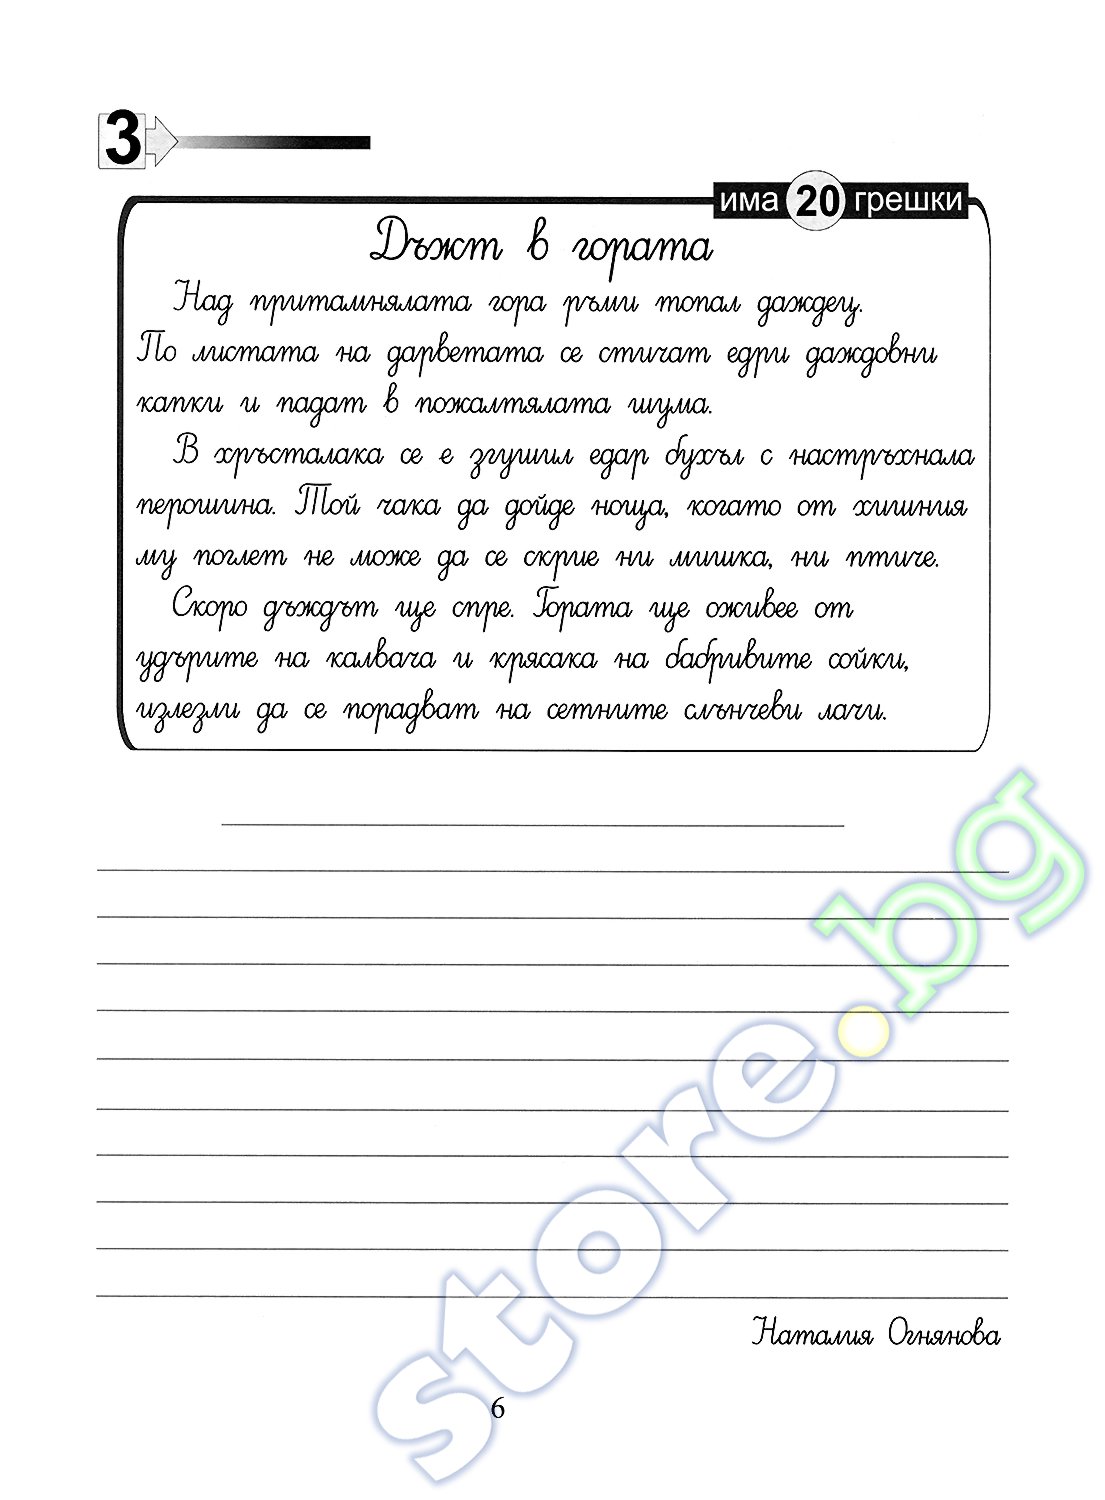 3
има 20 грешки
Дъжт в гората
Над притамнялата гора ръми топал даждец.
По листата на дарветата се стичат едри даждовни
капки и падат в пожалтялата шума.
В хръсталака се е згушил едар бухъл с настръхнала
перошина. Той чака да дойде ноща, когато от хишния
му поглет не може да се скрие ни мишка, ни птиче.
Скоро дъждът ще спре. Гората ще оживее от
удърите на калвача и крясака на бабривите сойки,
излезли да се порадват на сетните слънчеви лачи.
store.bg
Наталия Огнянова
6